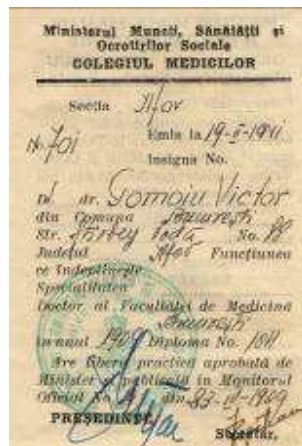 Ministerul Muncii, Sănătății și
Ocrotirilor Sociale
COLEGIUL MEDICILOR
Secția Ilfov
No. 701 Emis la 19-II-1941
Insigna No.
D. dr. Gomoiu Victor
din Comuna București
Str. Știrbey Vodă No. 88
Județul Ilfov Funcțiunea
ce îndeplinește
Specialitatea
Doctor al Facultății de Medicină
București
în anul 1909 Diploma No. 1011
Are libera practică aprobată de
Minister și publicată în Monitorul
Oficial No. din 23-IV-1909
PREȘEDINTE,
Secretar,